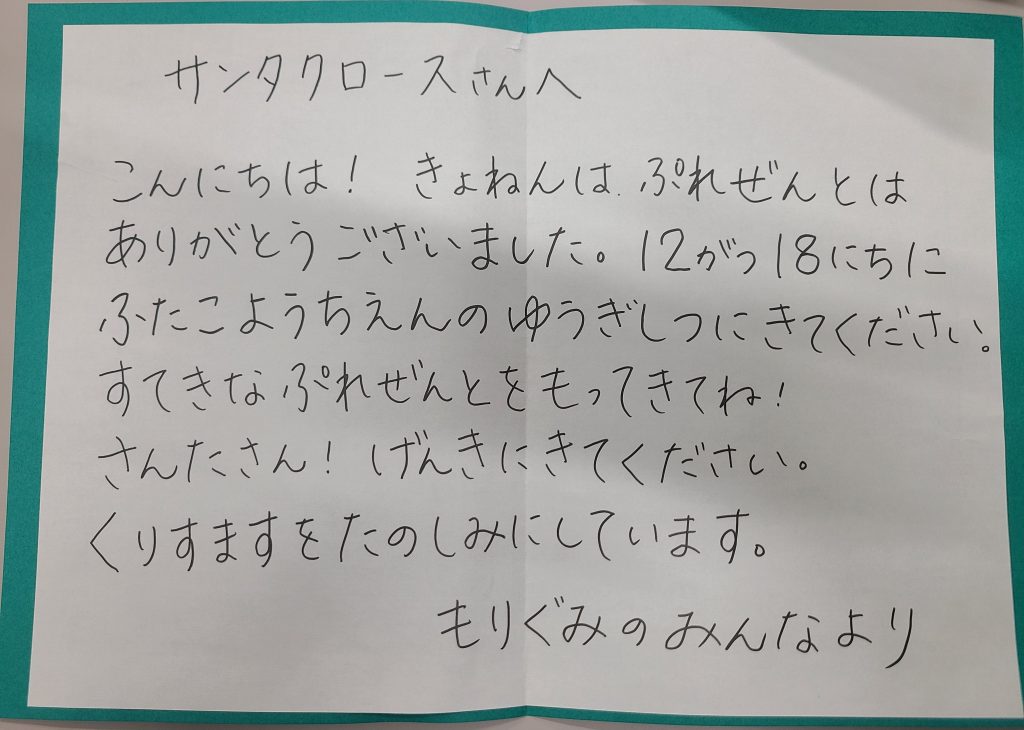 サンタクロースさんへ
こんにちは！ きょねんは ぷれぜんとは
ありがとうございました。12がつ18にちに
ふたこようちえんのゆうぎしつにきてください。
すてきなぷれぜんとをもってきてね！
さんたさん！げんきにきてください。
くりすますをたのしみにしています。
もりぐみのみんなより